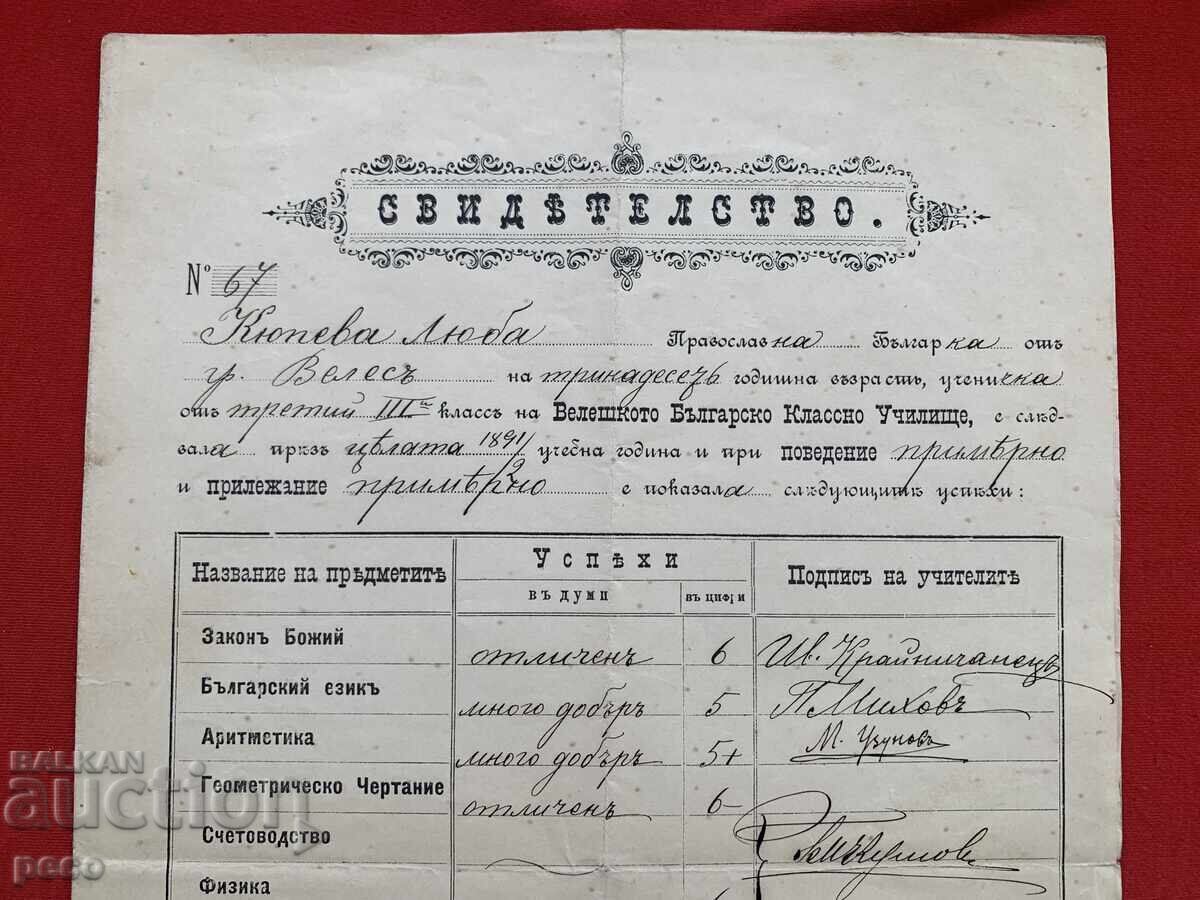 СВИДѢТЕЛСТВО.
№ 67
Кюпева Люба Православна Българка отъ
гр. Велесъ на тринадесеть годишна възрасть, ученичка
отъ третий III класъ на Велешкото Българско Классно Училище, е слѣд-
вала прѣзъ цѣлата 1891/2 учебна година и при поведение примѣрно
и прилежание примѣрно е показала слѣдующитѣ успѣхи:
Название на прѣдметитѣ Успѣхи въ думи въ цифри Подписъ на учителитѣ
Законъ Божий отличенъ 6 Ив. Крайничанецъ
Българский езикъ много добъръ 5 П Миховъ
Аритметика много добъръ 5+ М. Узуновъ
Геометрическо Чертание отличенъ 6-
Счетоводство
Физика
BALKAN
auction
peco